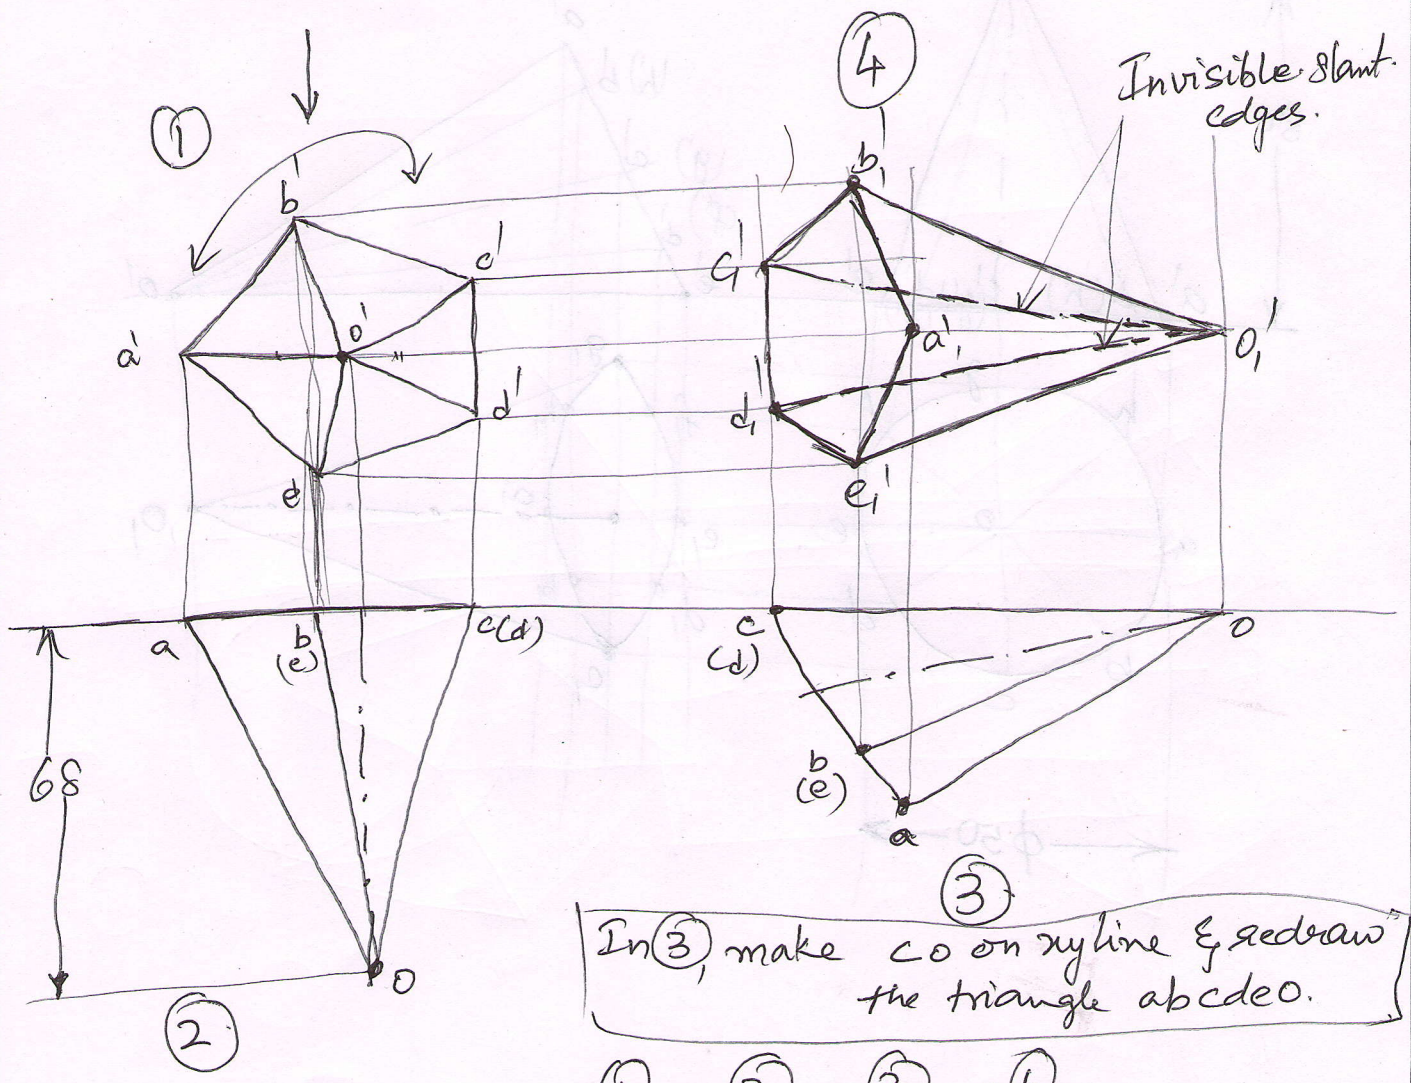 1
4
Invisible slant.
edges.
b'
c'
a'
o'
d'
e'
b1'
c1'
a1'
o1'
d1'
e1'
a
b
(e)
c(d)
c
(d)
o
68
b
(e)
a
o
2
3
In 3, make co on xy line & redraw
the triangle abcdeo.